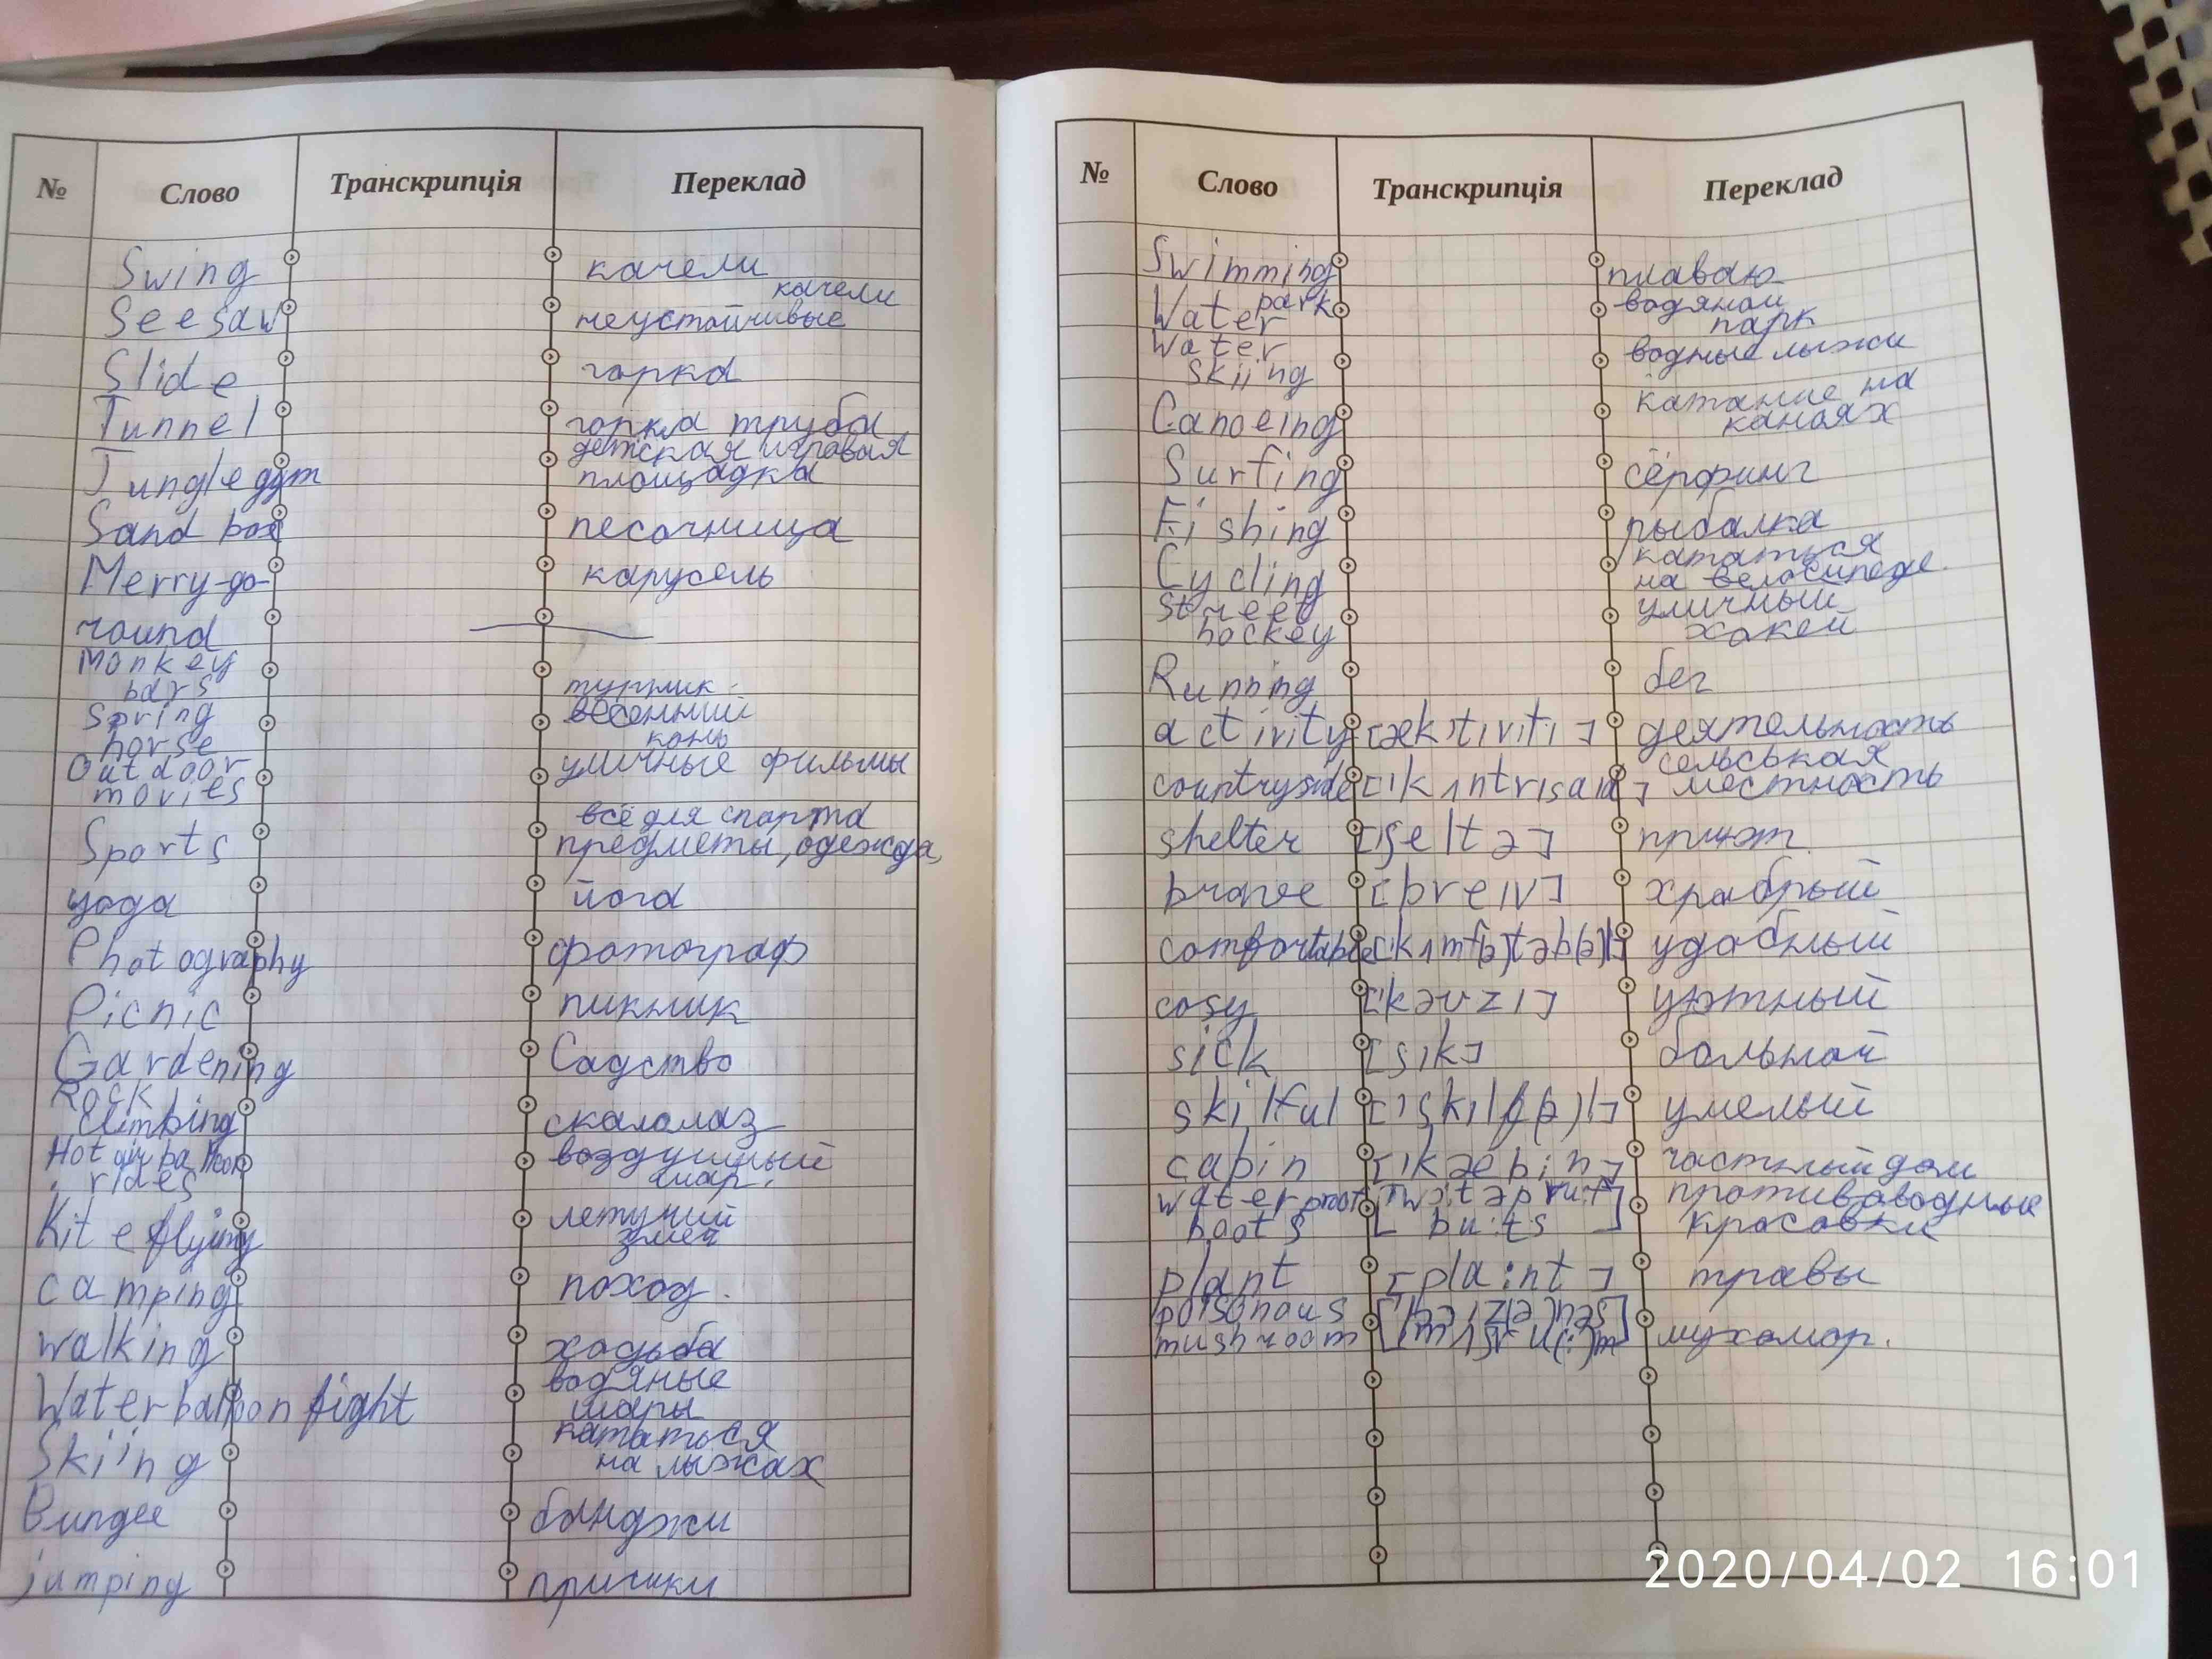 № Слово Транскрипція Переклад
Swing качели
Seesaw неустойчивые качели
Slide горка
Tunnel горка труба
Jungle gym детская игровая площадка
Sand box песочница
Merry-go- карусель
round
Monkey bars турник
Spring horse весенний конь
Outdoor movies уличные фильмы
Sports всё для спорта предметы, одежда,
yoga йога
Photography фотограф
Picnic пикник
Gardening Садство
Rock climbing скалолаз
Hot air balloon rides воздушный шар.
Kite flying летучий змей
camping поход.
walking ходьба
Water balloon fight водяные шары
Skiing кататься на лыжах
Bungee банджи
jumping прижки
№ Слово Транскрипція Переклад
Swimming плаваю
Water park водяной парк
Water skiing водные лыжи
Canoeing катание на каноях
Surfing сёрфинг
Fishing рыбалка
Cycling кататься на велосипеде.
Street hockey уличный хокей
Running бег
activity [æk'tɪvɪtɪ] деятельность
countryside ['kʌntrɪsaɪd] сельськая местность
shelter ['ʃeltə] приют
brave [breɪv] храбрый
comfortable ['kʌmf(ə)təb(ə)l] удобный
cosy ['kəʊzɪ] уютный
sick [sɪk] больной
skilful ['skɪlf(ə)l] умелый
cabin ['kæbin] частный дом
waterproof boots ['wɔ:təpru:f bu:ts] противоводные красовки
plant [pla:nt] травы
poisonous mushroom мухомор.
2020/04/02 16:01